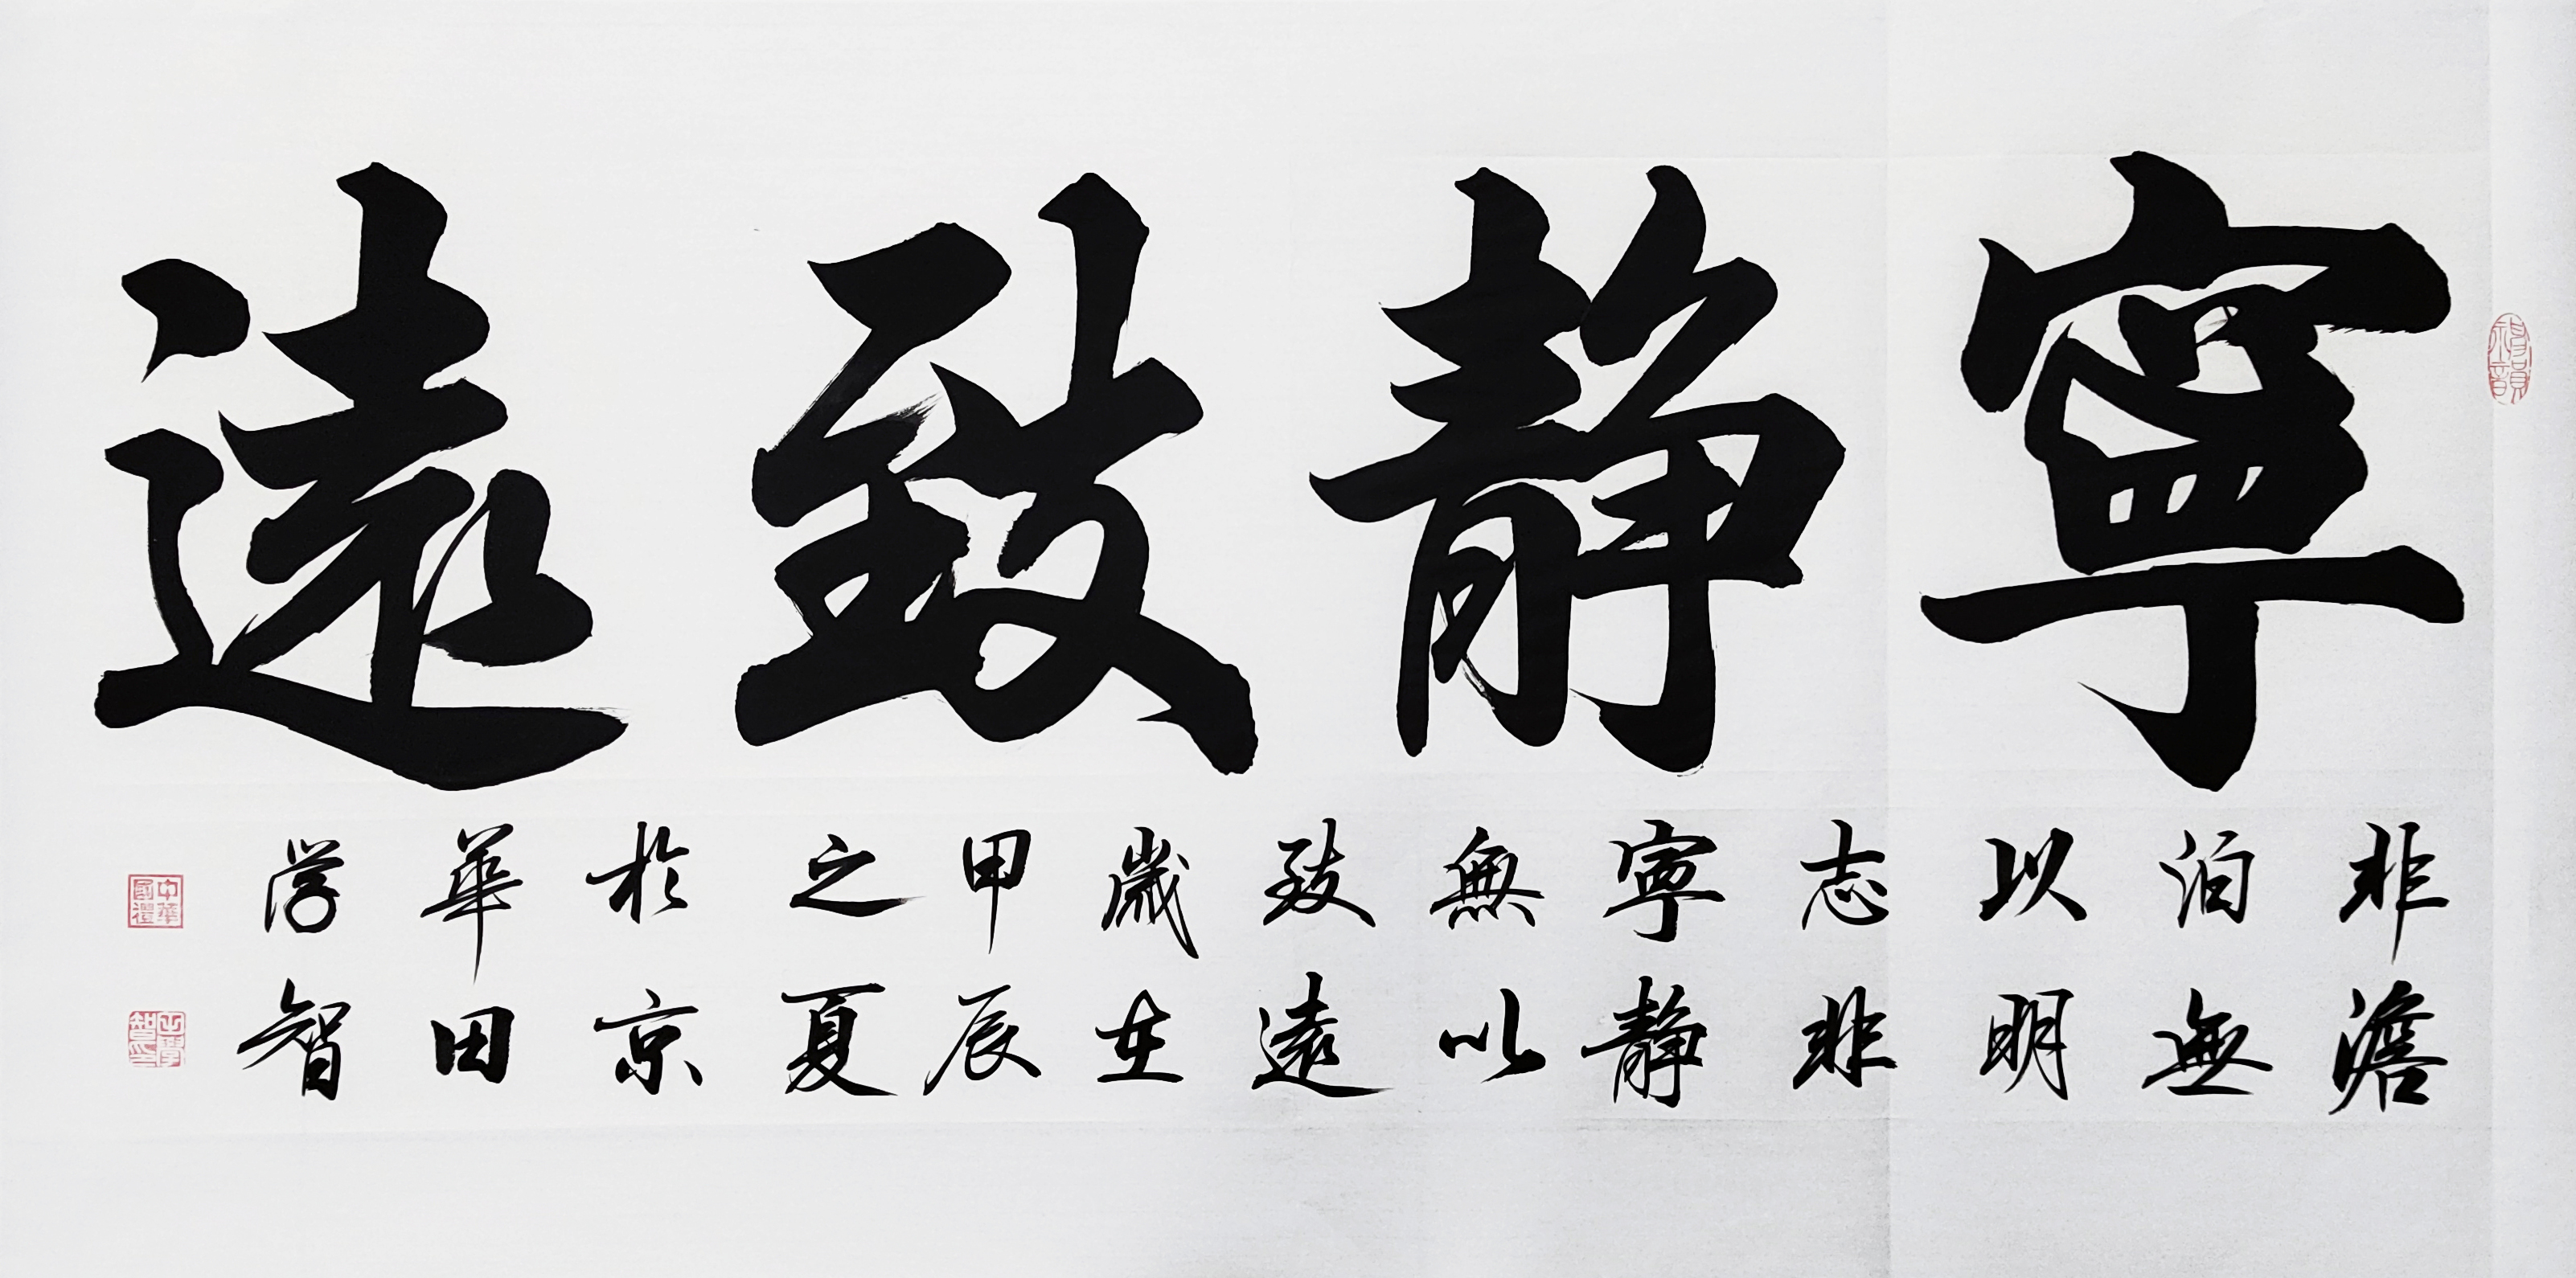 寧靜致遠
非澹
泊無
以明
志非
寧靜
無以
致遠
歲在
甲辰
之夏
於京
華田
学智
中華國禮